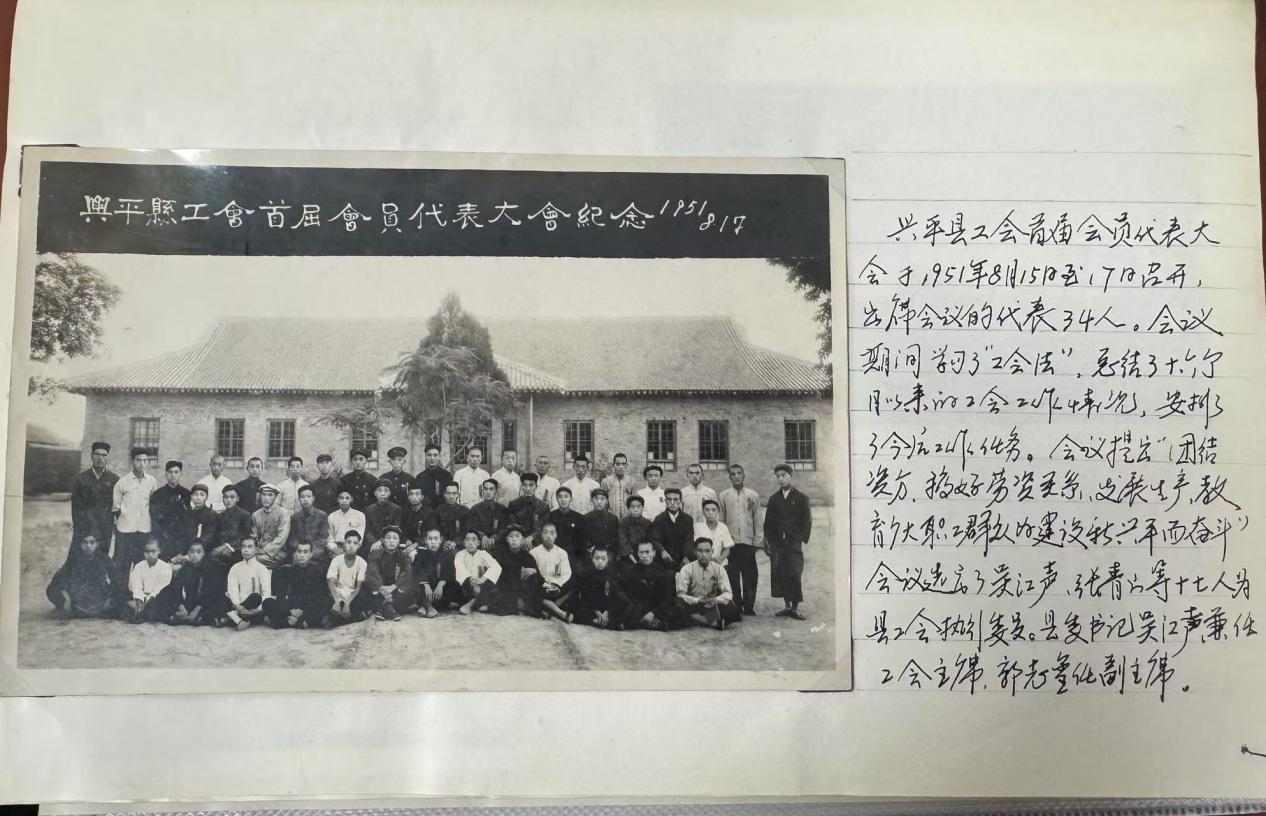 興平縣工會首屆會員代表大會紀念 1951 8.17
兴平县工会首届会员代表大
会于1951年8月15日至17日召开，
出席会议的代表34人。会议
期间学习了“工会法”，总结了十六个
月以来的工会工作情况，安排
了今后工作任务。会议提出“团结
资方，搞好劳资关系，发展生产，教
育广大职工群众为建设新兴平而奋斗”
会议选启了吴江声、张青山等十七人为
县工会执行委员。县委书记吴江声兼任
工会主席，郭志 任副主席。